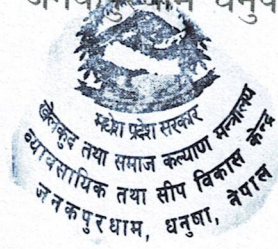 मधेश प्रदेश सरकार
खेलकुद तथा समाज कल्याण मन्त्रालय
व्यावसायिक तथा सीप विकास केन्द्र
जनकपुरधाम, धनुषा, नेपाल